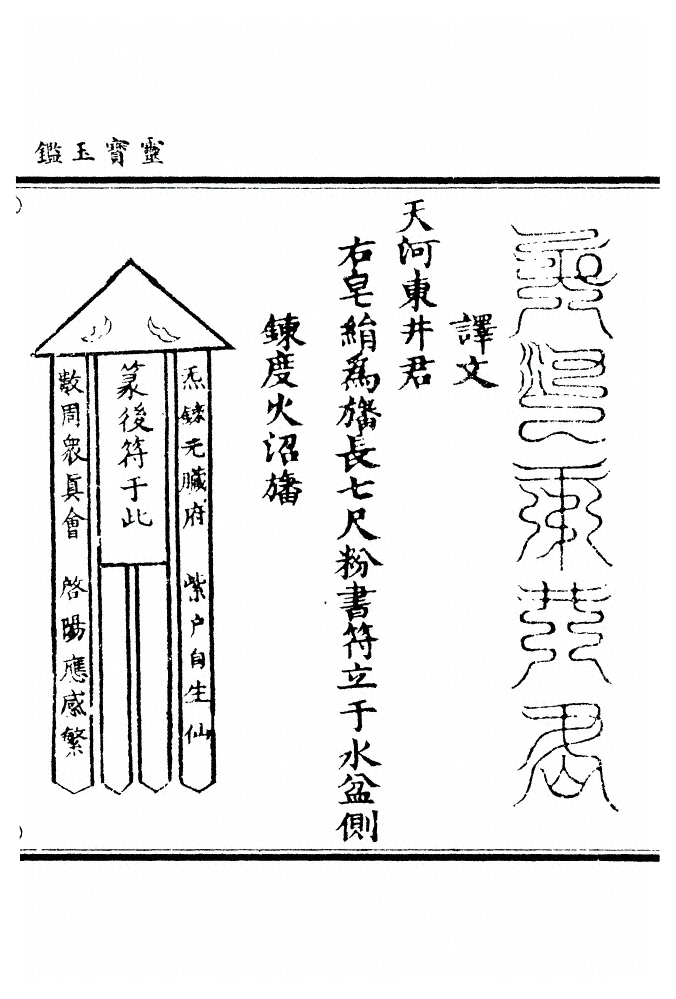 靈寶玉鑑
譯文
天河東井君
右皂絹爲旛長七尺粉書符立于水盆側
鍊度火沼旛
炁鍊元臟府　紫户自生仙
篆後符于此
數周衆眞會　啓陽應感繁